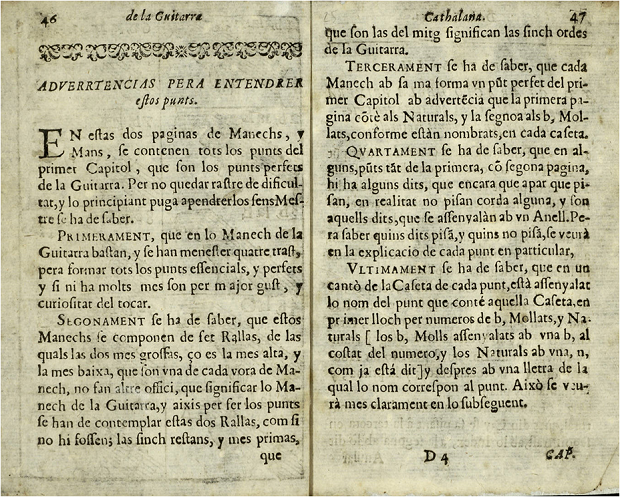 46 de la Guitarra
ADVERRTENCIAS PERA ENTENDRER
estos punts.
EN estas dos paginas de Manechs, y
Mans, se contenen tots los punts del
primer Capitol, que son los punts perfets
de la Guitarra. Per no quedar rastre de dificul-
tat,y lo principiant puga apendrerlos sens Mes-
tre se ha de saber.
PRIMERAMENT, que en lo Manech de la
Guitarra bastan, y se han menester quatre trasts,
pera formar tots los punts essencials, y perfets
y si ni ha molts mes son per major gust, y
curiositat del tocar.
SEGONAMENT se ha de saber, que estos
Manechs se componen de set Rallas, de las
quals las dos mes grossas, ço es la mes alta, y
la mes baixa, que son vna de cada vora de Ma-
nech, no fan altre offici, que significar lo Ma-
nech de la Guitarra,y aixis per fer los punts
se han de contemplar estas dos Rallas, com si
no hi fossen; las sinch restans, y mes primas,
que
Cathalana. 47
que son las del mitg significan las sinch ordes
de la Guitarra.
TERCERAMENT se ha de saber, que cada
Manech ab sa ma forma vn pũt perfet del pri-
mer Capitol ab advertẽcia que la primera pa-
gina cõtè als Naturals, y la segnoa als b, Mol-
lats,conforme estàn nombrats,en cada caseta.
QVARTAMENT se ha de saber, que en al-
guns,puts tãt de la primera, cõ segona pagina,
hi ha alguns dits, que encara que apar que pi-
san, en realitat no pisan corda alguna, y son
aquells dits,que se assenyalàn ab vn Anell.Pe-
ra saber quins dits pisã,y quins no pisã,se veurà
en la explicacio de cada punt en particular,
VLTIMAMENT se ha de saber, que en un
cantò de la Caseta de cada punt,està assenyalat
lo nom del punt que conté aquella Caseta,en
primer lloch per numeros de b, Mollats,y Na-
turals [ los b, Molls assenyalats ab vna b, al
costat del numero,y los Naturals ab vna, n,
com ja està dit]y despres ab vna lletra de la
qual lo nom correspon al punt. Això se veu-
rà mes clarament en lo subseguent.
D 4 CAP.